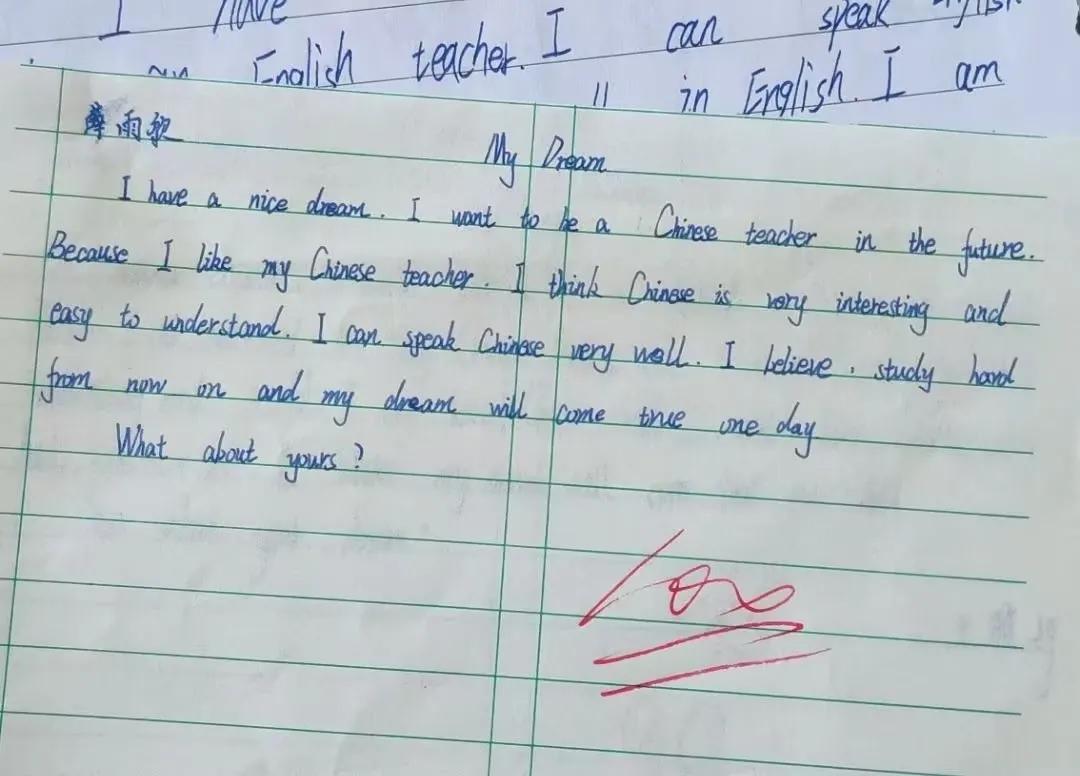 I have
English teacher. I can speak
in English. I am
雨歌
My Dream
I have a nice dream. I want to be a Chinese teacher in the future.
Because I like my Chinese teacher. I think Chinese is very interesting and
easy to understand. I can speak Chinese very well. I believe, study hard
from now on and my dream will come true one day
What about yours?
100